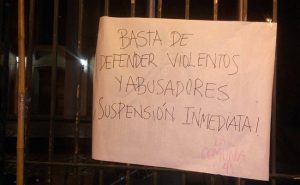 BASTA DE
DEFENDER VIOLENTOS
Y ABUSADORES
¡SUSPENSIÓN INMEDIATA!